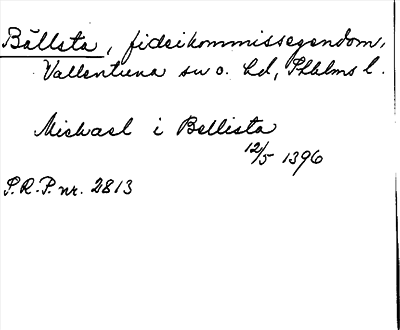 Bällsta, fideikommissegendom,
Vallentuna sn o. hd, Sthlms l.
Michael i Bellista
12/5 1396
S.R.P. nr. 2813